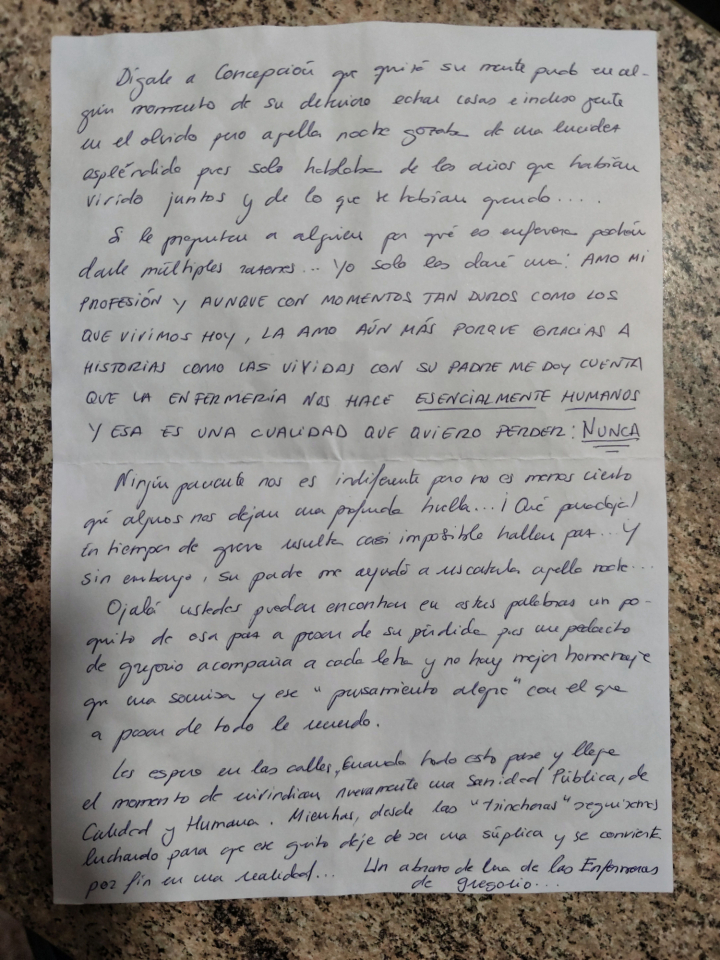 Dígale a Concepción que quizá su mente pudo en al-
gún momento de su deterioro echar cosas e incluso gente
en el olvido pero aquella noche gozaba de una lucidez
espléndida pues solo hablaba de los años que habían
vivido juntos y de lo que se habían querido.....
Si le preguntan a alguien por qué es enfermera podrán
darle múltiples razones... Yo solo les daré una: AMO MI
PROFESIÓN Y AUNQUE CON MOMENTOS TAN DUROS COMO LOS
QUE VIVIMOS HOY, LA AMO AÚN MÁS PORQUE GRACIAS A
HISTORIAS COMO LAS VIVIDAS CON SU PADRE ME DOY CUENTA
QUE LA ENFERMERÍA NOS HACE ESENCIALMENTE HUMANOS
Y ESA ES UNA CUALIDAD QUE QUIERO PERDER: NUNCA
Ningún paciente nos es indiferente pero no es menos cierto
qué algunos nos dejan una profunda huella... ¡Qué paradoja!
En tiempos de guerra resulta casi imposible hallar paz... Y
sin embargo, su padre me ayudó a rescatarla aquella noche...
Ojalá ustedes puedan encontrar en estas palabras un po-
quito de esa paz a pesar de su pérdida pues un pedacito
de Gregorio acompaña a cada letra y no hay mejor homenaje
que una sonrisa y ese "pensamiento alegre" con el que
a pesar de todo le recuerdo.
Les espero en las calles, cuando todo esto pase y llegue
el momento de reivindicar nuevamente una Sanidad Pública, de
Calidad y Humana. Mientras, desde las "trincheras" seguiremos
luchando para que ese grito deje de ser una súplica y se convierta
por fin en una realidad... Un abrazo de una de las Enfermeras
de Gregorio...